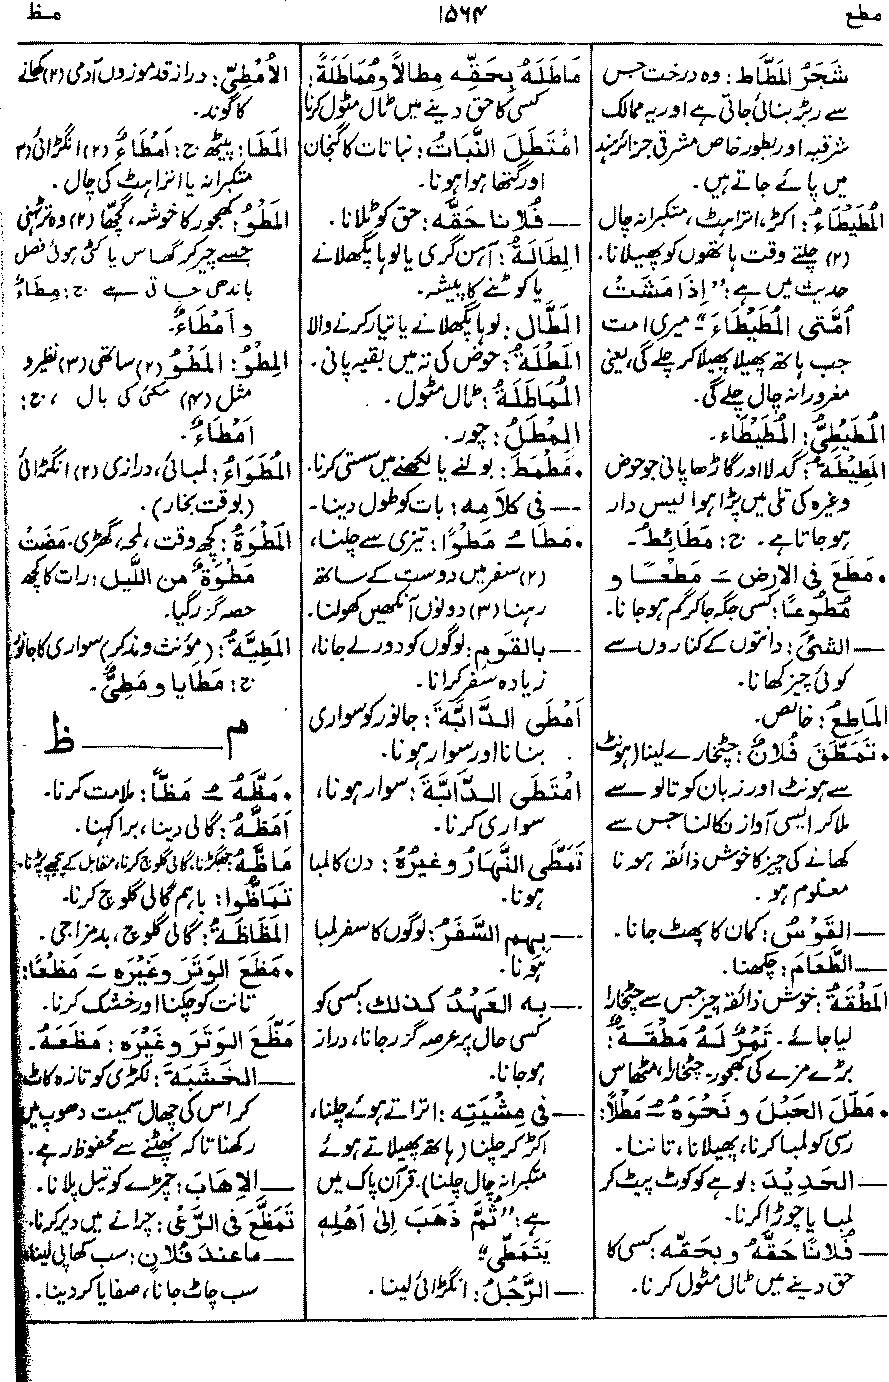 مطع
۱۵۶۴
مظ
شَجَرُ المَطَّاط: وہ درخت جس
سے ربڑ بنائی جاتی ہے اور یہ ممالک
شرقیہ اور بطور خاص مشرقی جزائر ہند
میں پائے جاتے ہیں۔
المُطَيْطَاءُ: اکڑ، اتراہٹ، متکبرانہ چال
(۲) چلتے وقت ہاتھوں کو پھیلانا۔
حدیث میں ہے: "إِذَا مَشَتْ
أُمَّتِي المُطَيْطَاءَ" میری امت
جب ہاتھ پھیلا پھیلا کر چلے گی، یعنی
مغرورانہ چال چلے گی۔
المُطَيْطِيُّ: المُطَيْطَاء۔
المَطِيْطَةُ: گدلا اور گاڑھا پانی جو حوض
وغیرہ کی تلی میں پڑا ہوا لیس دار
ہوجاتا ہے۔ ج: مَطَائِطُ۔
• مَطَعَ فِي الارض ـَ مَطْعًا و
مُطُوعًا: کسی جگہ جاکر گم ہوجانا۔
— الشئَ: دانتوں کے کناروں سے
کوئی چیز کھانا۔
المَاطِعُ: خالص۔
• تَمَطَّقَ فُلَانٌ: چٹخارے لینا (ہونٹ
سے ہونٹ اور زبان کو تالو سے
ملاکر ایسی آواز نکالنا جس سے
کھانے کی چیز کا خوش ذائقہ ہونا
معلوم ہو۔
— القَوْسُ: کمان کا پھٹ جانا۔
— الطَّعَامَ: چکھنا۔
المَطْقَةُ: خوش ذائقہ چیز جس سے چٹخارا
لیا جائے۔ تَمْرٌ لَهُ مَطْقَةٌ:
بڑے مزے کی کھجور۔ چٹخارا، مٹھاس
• مَطَلَ الحَبْلَ و نَحْوَهُ ـُ مَطْلاً:
رسی کو لمبا کرنا، پھیلانا، تاننا۔
— الحَدِيْدَ: لوہے کو کوٹ پیٹ کر
لمبا یا چوڑا کرنا۔
— فُلَانًا حَقَّهُ و بِحَقِّهِ: کسی کا
حق دینے میں ٹال مٹول کرنا۔
مَاطَلَهُ بِحَقِّهِ مِطَالاً وَمُمَاطَلَةً:
کسی کا حق دینے میں ٹال مٹول کرنا
امْتَطَلَ النَّبَاتُ: نباتات کا گنجان
اور گتھا ہوا ہونا۔
— فُلَانا حَقَّهُ: حق کو ٹلانا۔
المِطَالَةُ: آہن گری یا لوہا پگھلانے
یا کوٹنے کا پیشہ۔
المَطَّال: لوہا پگھلانے یا تیار کرنے والا
المَطْلَةُ: حوض کی تہ میں بقیہ پانی۔
المُمَاطَلَةُ: ٹال مٹول۔
المِمْطَلُ: چور۔
• مَطْمَطَ: بولنے یا لکھنے میں سستی کرنا۔
— فی کلامِهِ: بات کو طول دینا۔
• مَطَا ـُ مَطْوًا: تیزی سے چلنا،
(۲) سفر میں دوست کے ساتھ
رہنا (۳) دونوں آنکھیں کھولنا۔
— بالقَومِ: لوگوں کو دور لے جانا،
زیادہ سفر کرانا۔
أَمْطَى الدَّابَّةَ: جانور کو سواری
بنانا اور سوار ہونا۔
امْتَطَى الدَّابَّةَ: سوار ہونا،
سواری کرنا۔
تَمَطَّى النَّهَارُ وغيرُهُ: دن کا لمبا
ہونا۔
— بِهِم السَّفَرُ: لوگوں کا سفر لمبا
ہونا۔
— به العَهْدُ كذلك: کسی کو
کسی حال پر عرصہ گزر جانا، دراز
ہوجانا۔
— فِي مِشْيَتِهِ: اتراتے ہوئے چلنا،
اکڑ کر چلنا (ہاتھ پھیلاتے ہوئے
متکبرانہ چال چلنا)۔ قرآن پاک میں
ہے: "ثُمَّ ذَهَبَ إِلَى أَهْلِهِ
يَتَمَطَّى"
— الرَّجُلُ: انگڑائی لینا۔
الأَمْطِيُّ: دراز قد موزوں آدمی (۲) کھانے
کا گوند۔
المَطَا: پیٹھ ج: أَمْطَاءٌ (۲) انگڑائی (۳)
متکبرانہ یا اتراہٹ کی چال۔
المَطْوُ: کھجور کا خوشہ، گچھا (۲) وہ ٹہنی
جسے چیر کر گھاس یا کٹی ہوئی فصل
باندھی جاتی ہے ج: مِطَاءٌ
و أَمْطَاءٌ۔
المِطْوُ: المَطْوُ (۲) ساتھی (۳) نظیر و
مثل (۴) مکئی کی بال، ج:
أَمْطَاءٌ۔
المُطَوَاءُ: لمبائی، درازی (۲) انگڑائی
(بوقت بخار)۔
المَطْوَةُ: کچھ وقت، لمحہ، گھڑی۔ مَضَتْ
مَطْوَةٌ من اللَّيل: رات کا کچھ
حصہ گزر گیا۔
المَطِيَّةُ: (مؤنث و مذکر) سواری کا جانور
ج: مَطَايا و مَطِيٌّ۔
م — ظ
• مَظَّهُ ـُ مَظًّا: ملامت کرنا۔
أَمَظَّهُ: گالی دینا، برا کہنا۔
مَاظَّهُ: جھگڑنا، گالی گلوچ کرنا، مقابل کے پیچھے پڑنا۔
تَمَاظُّوا: باہم گالی گلوچ کرنا۔
المَظَاظَةُ: گالی گلوچ، بدمزاجی۔
• مَظَعَ الوَتَرَ وغَيْرَه ـَ مَظْعًا:
تانت کو چکنا اور خشک کرنا۔
مَظَّعَ الوَتَرَ وغَيْرَه: مَظَعَهُ۔
— الخَشَبَةَ: لکڑی کو تازہ کاٹ
کر اس کی چھال سمیت دھوپ میں
رکھنا تاکہ پھٹنے سے محفوظ رہے۔
— الإهَابَ: چمڑے کو تیل پلانا۔
تَمَظَّعَ فِي الرَّعْيِ: چرانے میں دیر کرنا۔
— ما عندَ فُلَانٍ: سب کھا پی لینا،
سب چاٹ جانا، صفایا کردینا۔